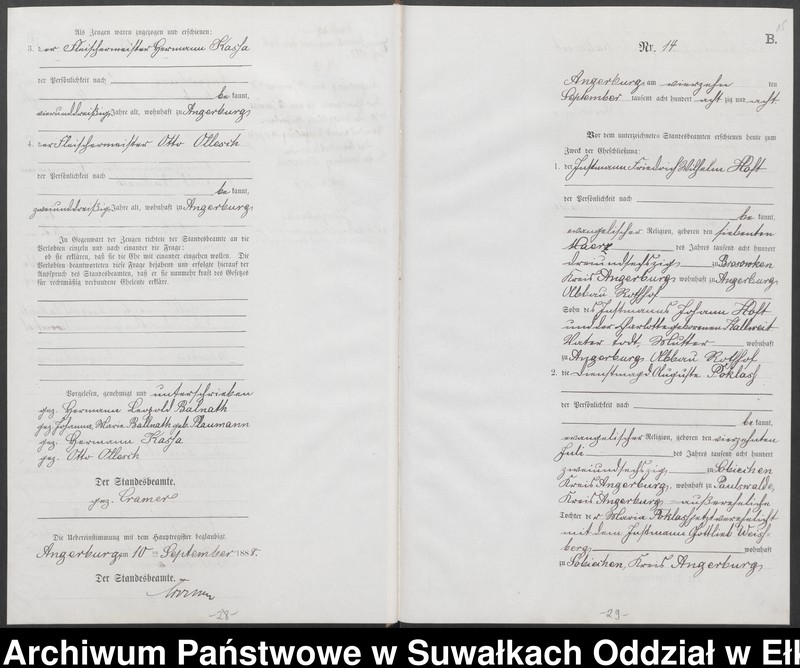 Als Zeugen waren zugezogen und erschienen:
3. der Fleischermeister Hermann Kassa
der Persönlichkeit nach
be kannt,
vierunddreißig Jahre alt, wohnhaft zu Angerburg
4. der Fleischermeister Otto Ollesch
der Persönlichkeit nach
be kannt,
zweiunddreißig Jahre alt, wohnhaft zu Angerburg
In Gegenwart der Zeugen richtete der Standesbeamte an die
Verlobten einzeln und nach einander die Frage:
ob sie erklären, daß sie die Ehe mit einander eingehen wollen. Die
Verlobten beantworteten diese Frage bejahend und erfolgte hierauf der
Ausspruch des Standesbeamten, daß er sie nunmehr kraft des Gesetzes
für rechtmäßig verbundene Eheleute erkläre.
Vorgelesen, genehmigt und unterschrieben
gez. Hermann Leopold Balnath
gez. Johanna, Marie Ballnath geb. Plaumann
gez. Hermann Kassa
gez. Otto Ollesch
Der Standesbeamte.
gez. Cramer
Die Uebereinstimmung mit dem Hauptregister beglaubigt
Angerburg am 10 ten September 1888.
Der Standesbeamte.
-28-
B.
Nr. 14
Angerburg am vierzehn ten
September tausend acht hundert acht zig und acht
Vor dem unterzeichneten Standesbeamten erschienen heute zum
Zweck der Eheschließung:
1. der Instmann Friedrich Wilhelm Höft
der Persönlichkeit nach
be kannt,
evangelischer Religion, geboren den siebenten
Maerz des Jahres tausend acht hundert
dreiundsechszig zu Brosowken
Kreis Angerburg wohnhaft zu Angerburg
Abbau Rothhof
Sohn des Instmanns Johann Höft
und der Charlotte geborenen Kallweit
Vater todt, Mutter wohnhaft
zu Angerburg, Abbau Rothhof
2. die Dienstmagd Auguste Poklas
der Persönlichkeit nach
be kannt,
evangelischer Religion, geboren den vierzehnten
Juli des Jahres tausend acht hundert
zweiundsechszig zu Sobiechen
Kreis Angerburg, wohnhaft zu Paulswalde,
Kreis Angerburg außereheliche
Tochter der Maria Poklas jetzt verehelicht
mit dem Instmann Gottlieb Weiss-
berg, wohnhaft
zu Sobiechen, Kreis Angerburg
-29-
Archiwum Państwowe w Suwałkach Oddział w Eł